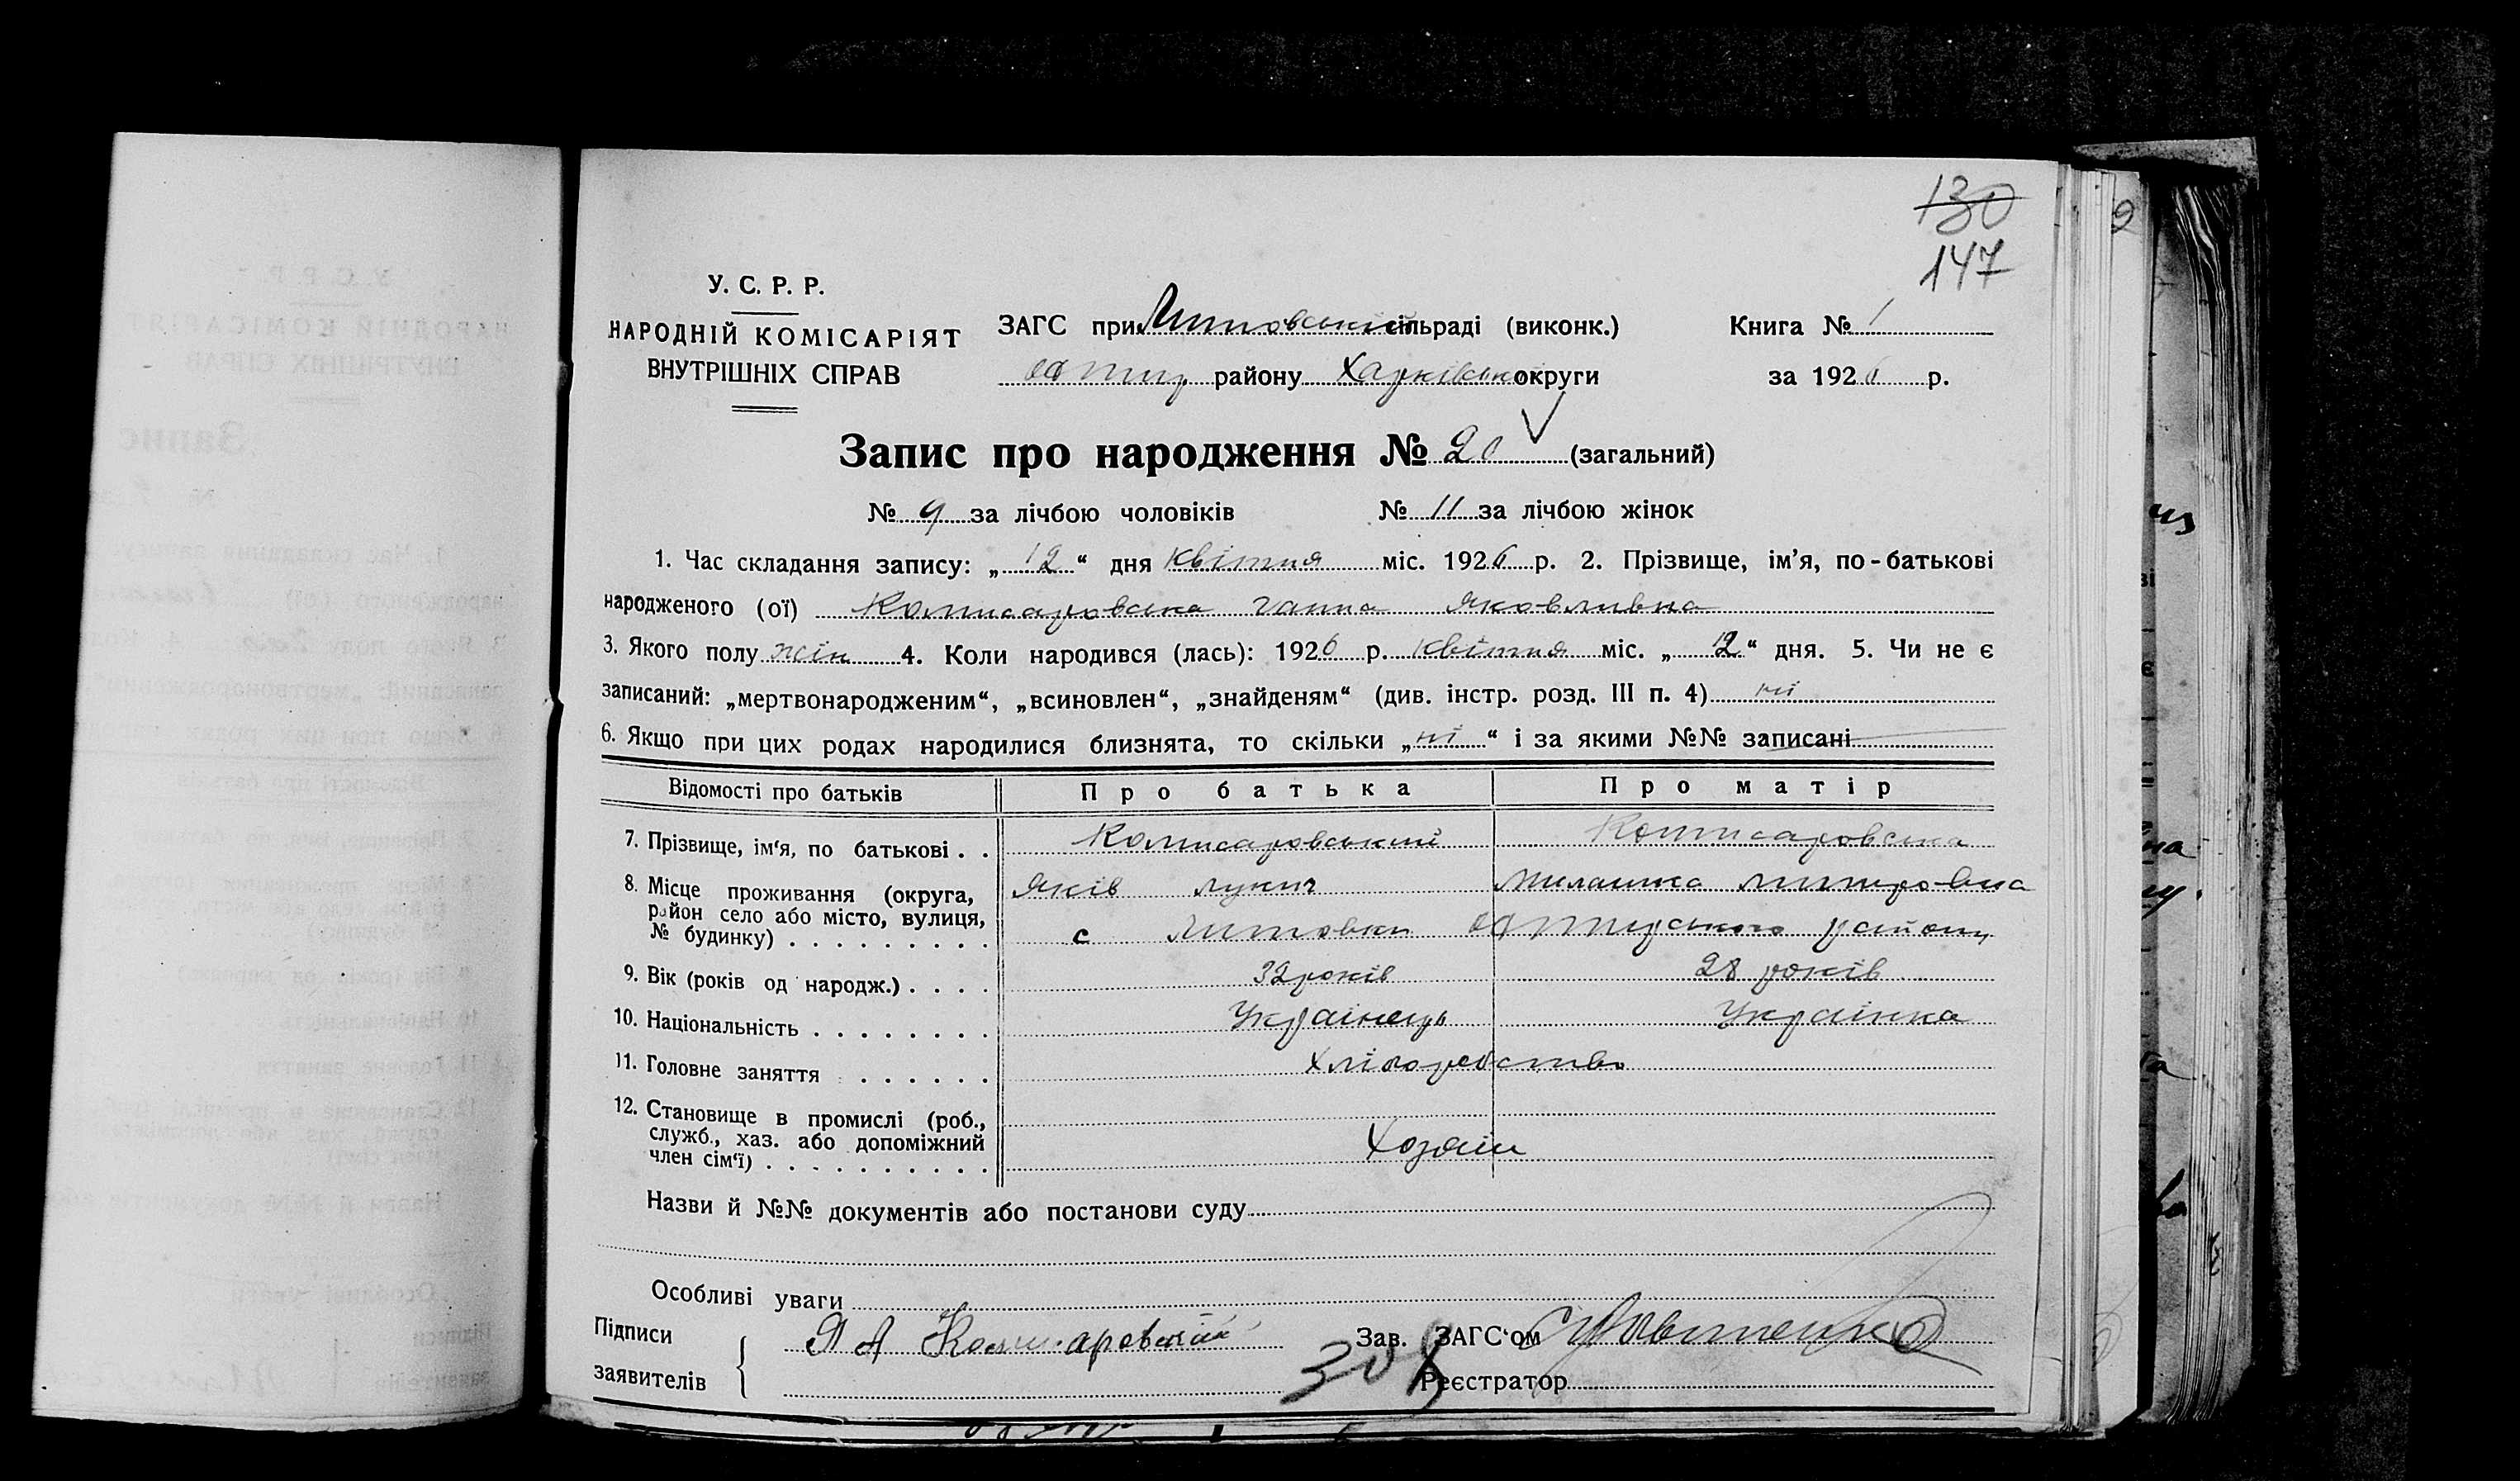 130
147
У. С. Р. Р.
НАРОДНІЙ КОМІСАРІЯТ
ВНУТРІШНІХ СПРАВ
ЗАГС при Литовській сільраді (виконк.)
району Харківської округи
Книга № 1
за 1926 р.
Запис про народження № 20 (загальний)
№ 9 за лічбою чоловіків № 11 за лічбою жінок
1. Час складання запису: „ 12 “ дня квітня міс. 1926 р. 2. Прізвище, ім’я, по-батькові
народженого (ої) Комисаровска Ганна Яковливна
3. Якого полу жін 4. Коли народився (лась): 1926 р. квітня міс. „ 12 “ дня. 5. Чи не є
записаний: „мертвонародженим“, „всиновлен“, „знайденям“ (див. інстр. розд. III п. 4) ні
6. Якщо при цих родах народилися близнята, то скільки „ ні “ і за якими №№ записані
Відомості про батьків Про батька Про матір
7. Прізвище, ім‘я, по батькові . . Комисаровський Комисаровска
Яків Лукич Милашка Митровна
8. Місце проживання (округа,
район село або місто, вулиця,
№ будинку) . . . . . . . . . с Литовки району
9. Вік (років од народж.) . . . . 32 років 28 років
10. Національність . . . . . . . . Украінець Украінка
11. Головне заняття . . . . . . Хліборобство
12. Становище в промислі (роб.,
служб., хаз. або допоміжний
член сім‘ї) . . . . . . . . . . Хозяін
Назви й №№ документів або постанови суду
Особливі уваги
Підписи
заявителів
Зав. ЗАГС‘ом
Реєстратор